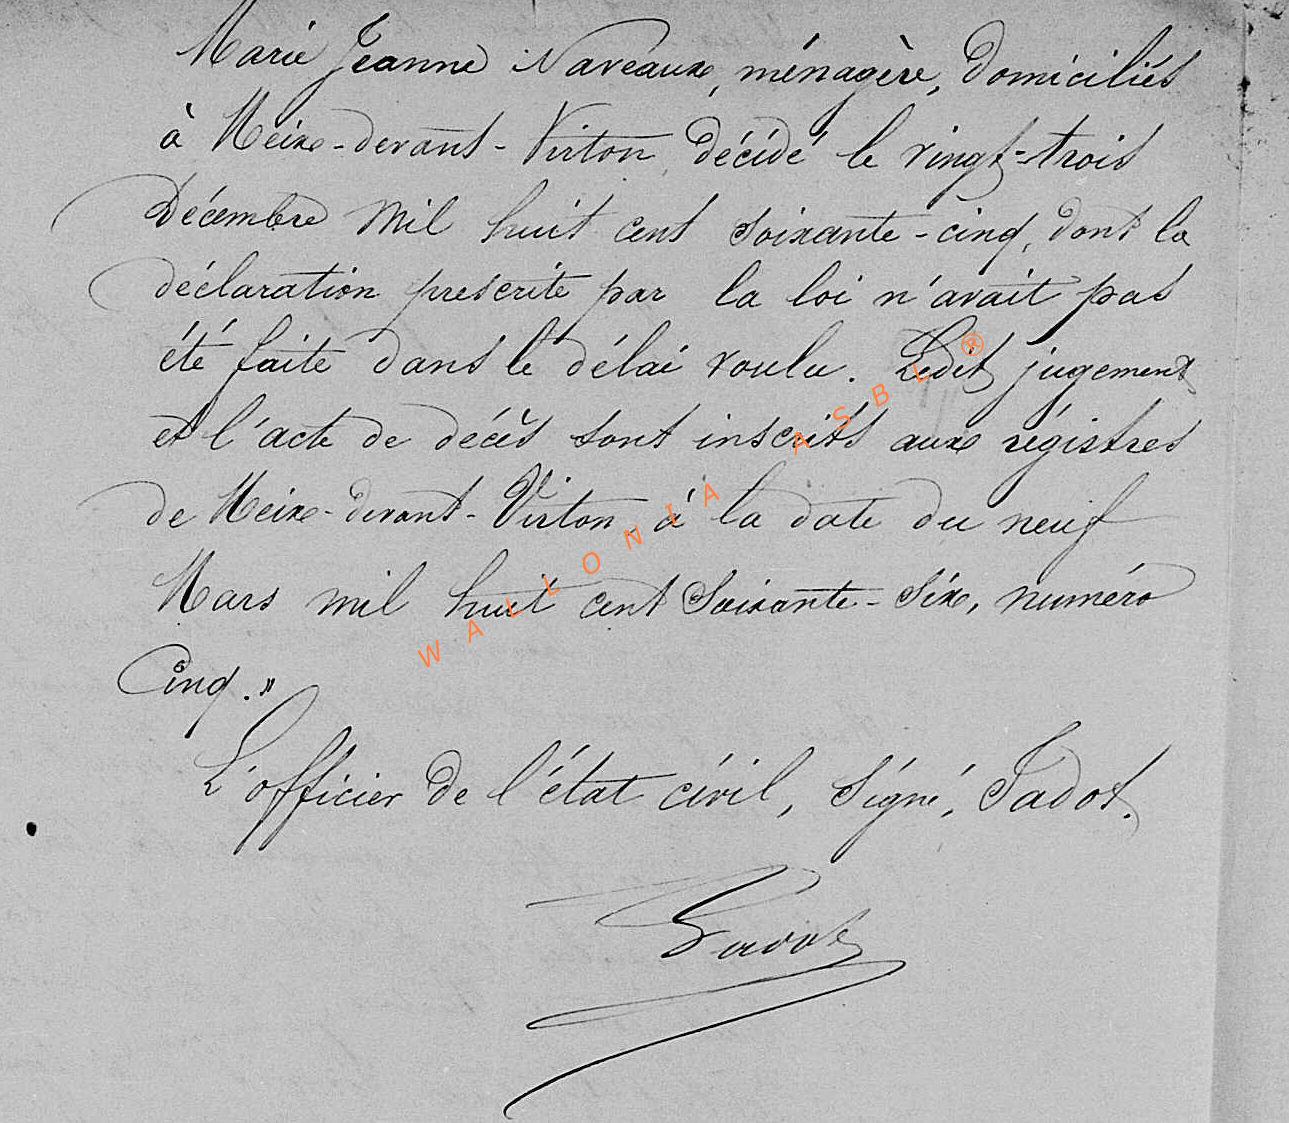 Marie Jeanne Naveaux, ménagère, domiciliés
à Meix-devant-Virton, décédé le vingt-trois
Décembre mil huit cent soixante-cinq, dont la
déclaration prescrite par la loi n'avait pas
été faite dans le délai voulu. Ledit jugement
et l'acte de décès sont inscrits aux régistres
de Meix-devant-Virton, à la date du neuf
Mars mil huit cent soixante-six, numéro
Cinq."
L'officier de l'état civil, signé, Jadot.
Jadot
WALLONIA ASBL ®